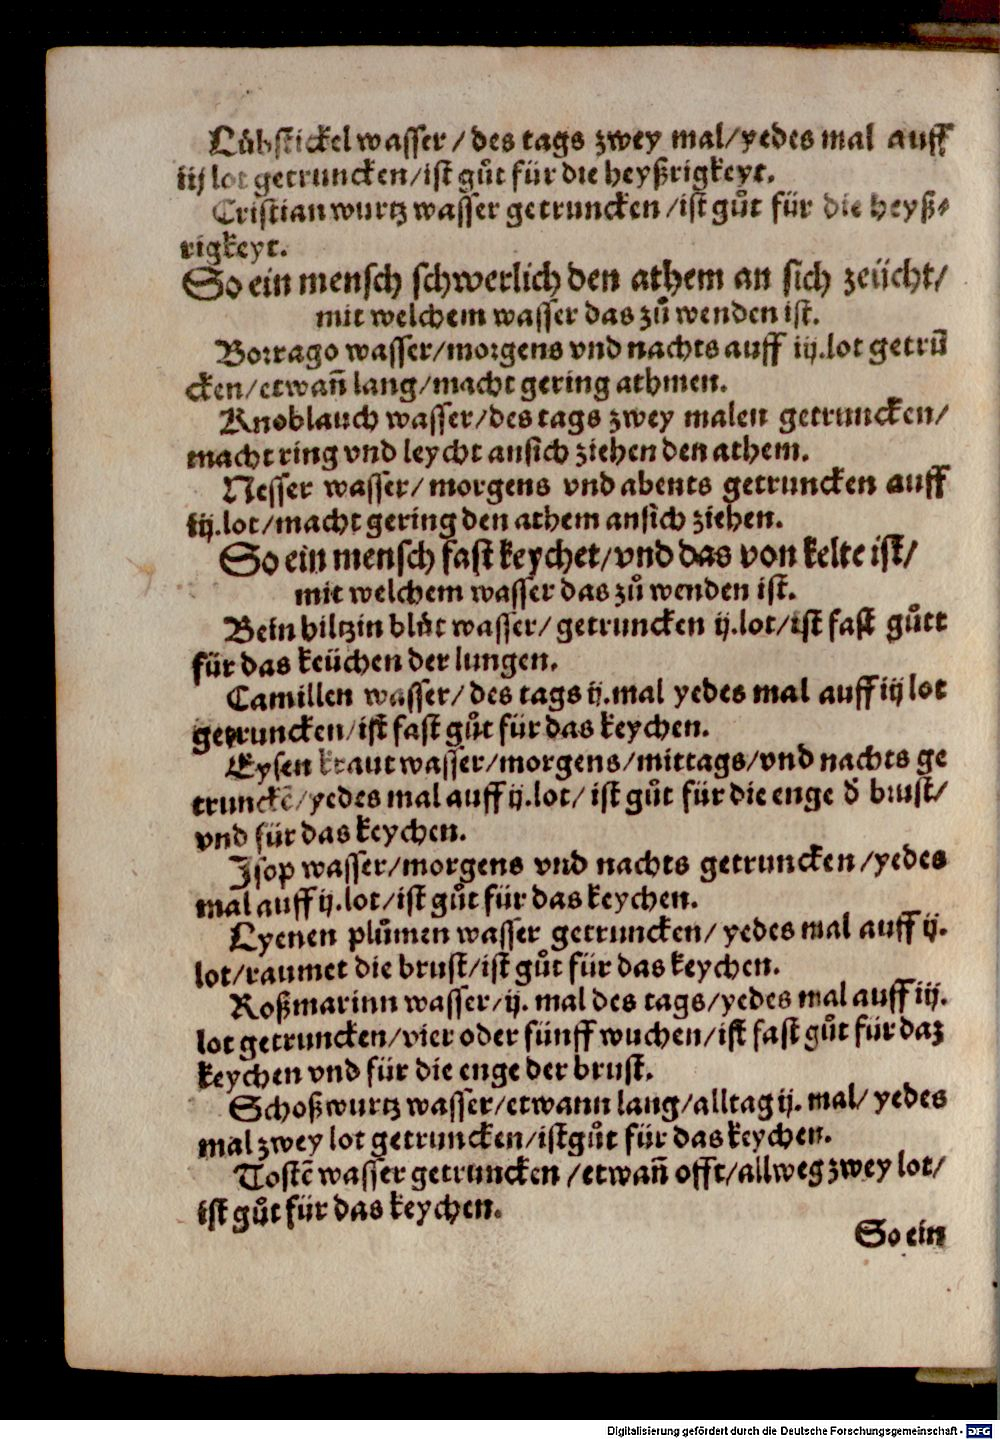 Lůbstickel wasser / des tags zwey mal/yedes mal auff
iij lot getruncken/ist gůt für die heyßrigkeyt.
Cristian wurtz wasser getruncken /ist gůt für die heyß⸗
rigkeyt.
So ein mensch schwerlich den athem an sich zeücht/
mit welchem wasser das zů wenden ist.
Borrago wasser/morgens vnd nachts auff iij.lot getrū
cken/etwañ lang/macht gering athmen.
Knoblauch wasser/des tags zwey malen getruncken/
macht ring vnd leycht ansich ziehen den athem.
Nesser wasser/ morgens vnd abents getruncken auff
iij.lot/macht gering den athem ansich ziehen.
So ein mensch fast keychet/vnd das von kelte ist/
mit welchem wasser das zů wenden ist.
Bein hiltzin blůt wasser/ getruncken ij.lot/ist fast gůtt
für das keüchen der lungen.
Camillen wasser/ des tags ij.mal yedes mal auff iij lot
getruncken/ist fast gůt für das keychen.
Eysen kraut wasser/morgens/mittags/vnd nachts ge
trunckē/yedes mal auff ij.lot/ ist gůt für die enge d̄ brust/
vnd für das keychen.
Isop wasser/morgens vnd nachts getruncken /yedes
mal auff ij.lot/ist gůt für das keychen.
Lyenen plůmen wasser getruncken/ yedes mal auff ij.
lot/raumet die brust/ist gůt für das keychen.
Roßmarinn wasser/ij. mal des tags/yedes mal auff iij.
lot getruncken/vier oder fünff wuchen/ist fast gůt für daz
keychen vnd für die enge der brust.
Schoßwurtz wasser/etwann lang/alltag ij. mal/ yedes
mal zwey lot getruncken/ist gůt für das keychen.
Tostē wasser getruncken /etwañ offt/allweg zwey lot/
ist gůt für das keychen.
So ein
Digitalisierung gefördert durch die Deutsche Forschungsgemeinschaft - DFG